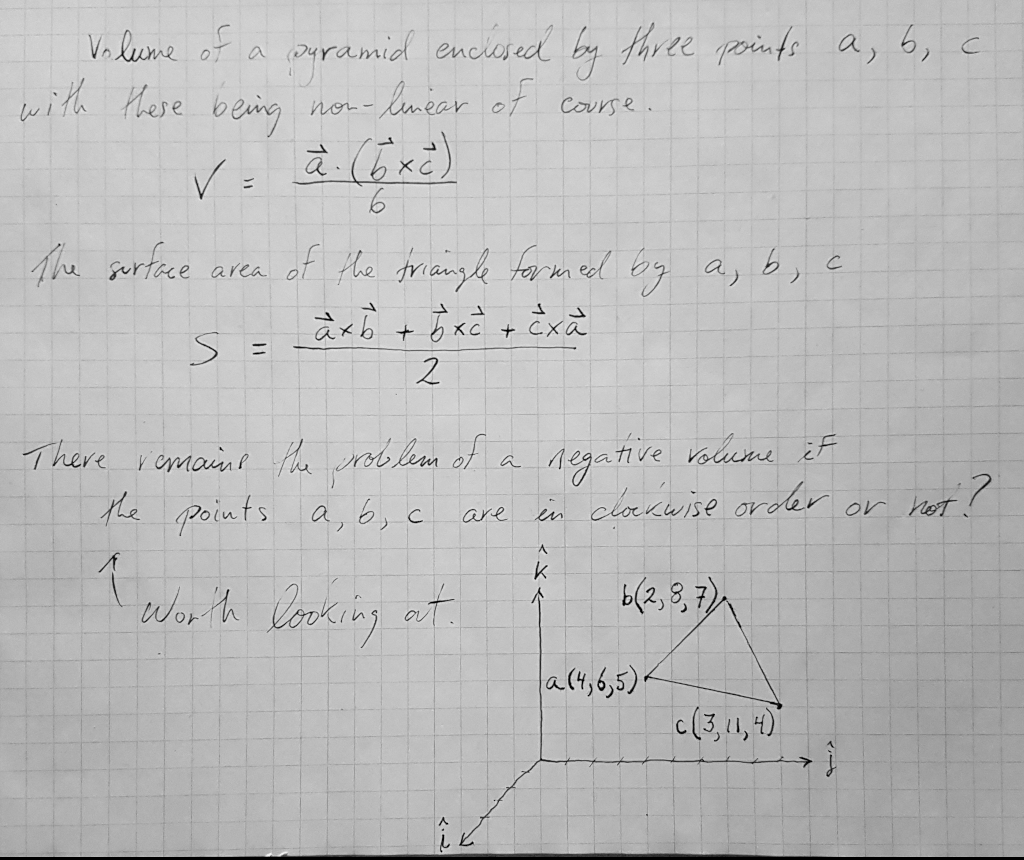 Volume of a pyramid enclosed by three points a, b, c
with these being non-linear of course.
V = a⃗ · (b⃗ × c⃗) / 6
The surface area of the triangle formed by a, b, c
S = (a⃗ × b⃗ + b⃗ × c⃗ + c⃗ × a⃗) / 2
There remains the problem of a negative volume if
the points a, b, c are in clockwise order or not?
↑ Worth looking at.
k̂
b(2, 8, 7)
a(4, 6, 5)
c(3, 11, 4)
ĵ
î